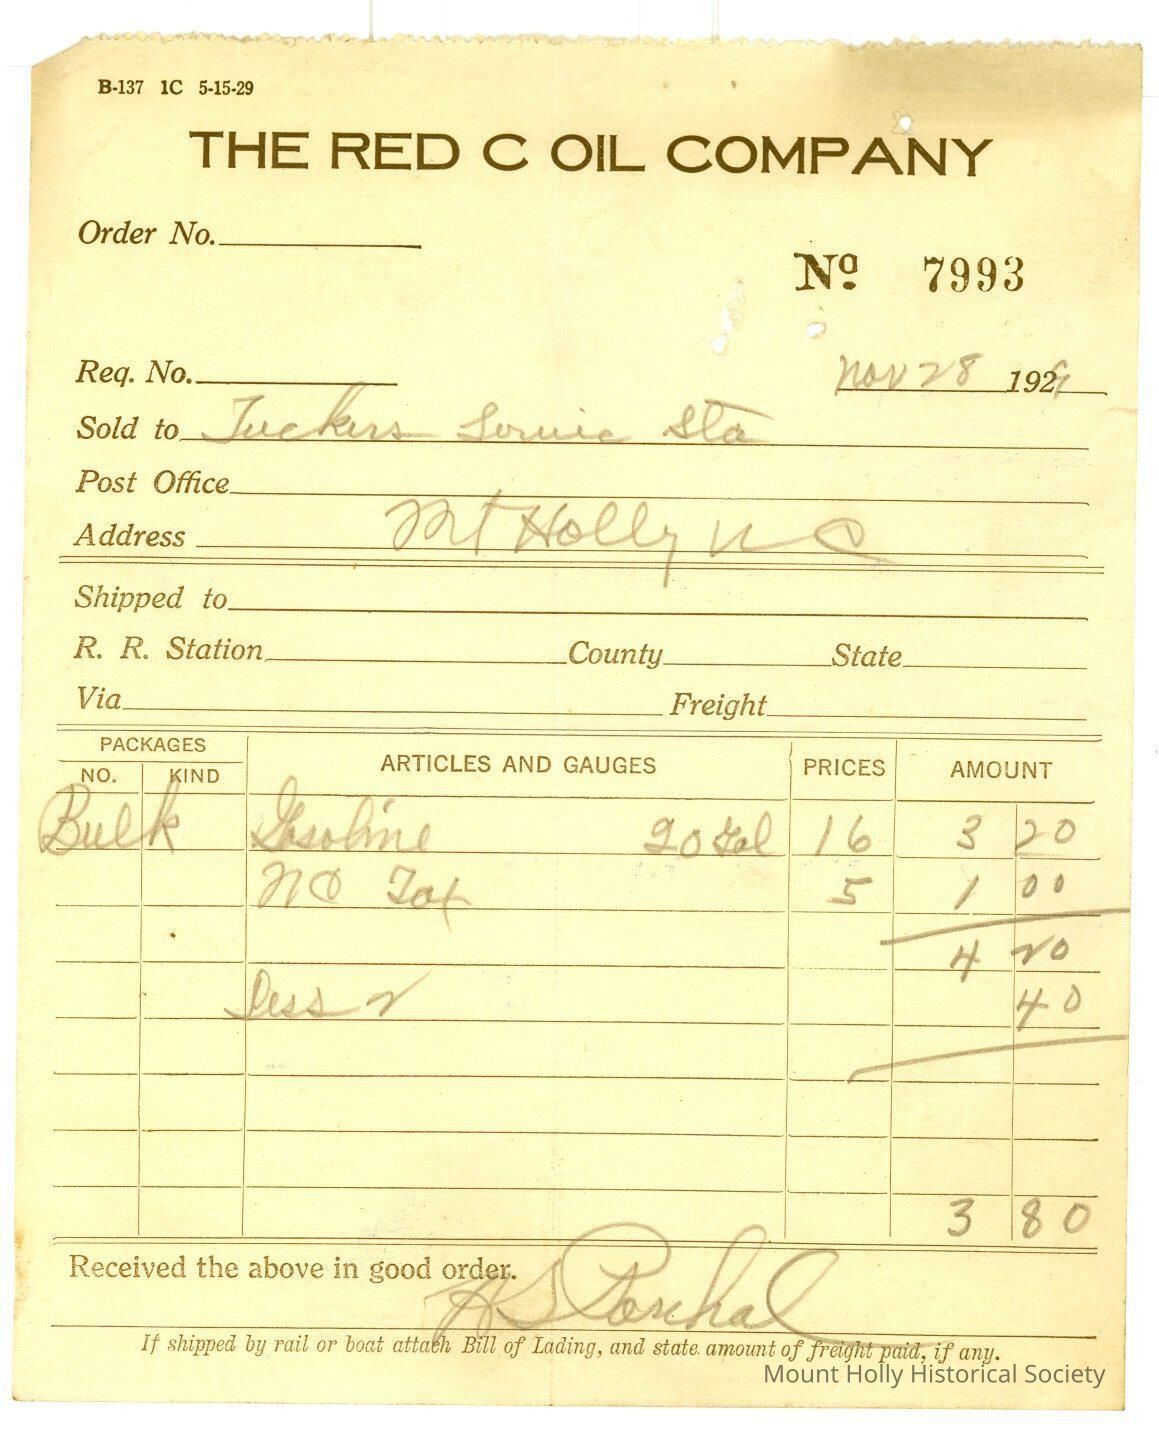 B-137 1C 5-15-29
THE RED C OIL COMPANY
Order No.
No. 7993
Req. No. Nov 28 1929
Sold to Tuckers Servic Sta
Post Office
Address Mt Holly N C
Shipped to
R. R. Station County State
Via Freight
PACKAGES
NO. KIND ARTICLES AND GAUGES PRICES AMOUNT
Bulk Gasoline 20 Gal 16 3 20
NC Tax 5 1 00
4 20
Less 2 40
3 80
Received the above in good order.
H S
If shipped by rail or boat attach Bill of Lading, and state amount of freight paid, if any.
Mount Holly Historical Society